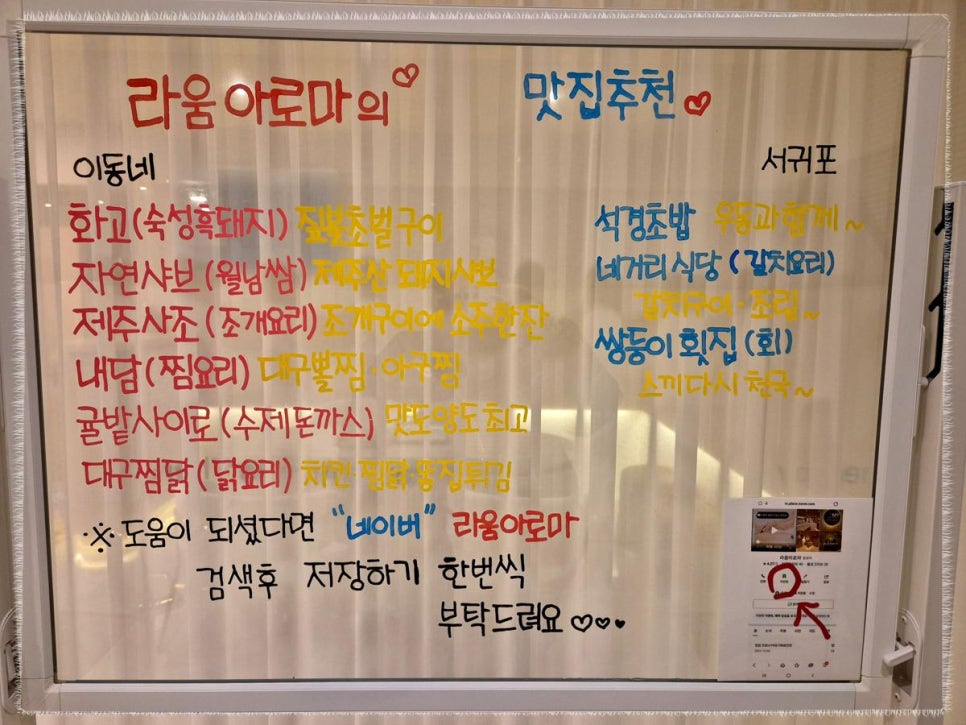 라움아로마의♡ 맛집추천♡
이동네
화고(숙성흑돼지) 짚불초벌구이
자연샤브(월남쌈) 제주산돼지샤브
제주사조(조개요리) 조개구이에 소주한잔
내담(찜요리) 대구뽈찜·아구찜
귤밭사이로(수제돈까스) 맛도양도최고
대구찜닭(닭요리) 치킨·찜닭·똥집튀김
서귀포
석경초밥 우동과함께~
네거리식당(갈치요리)
갈치구이·조림~
쌍둥이횟집(회)
스끼다시천국~
※ 도움이 되셨다면 "네이버" 라움아로마
검색후 저장하기 한번씩
부탁드려요♡♡♥
라움아로마